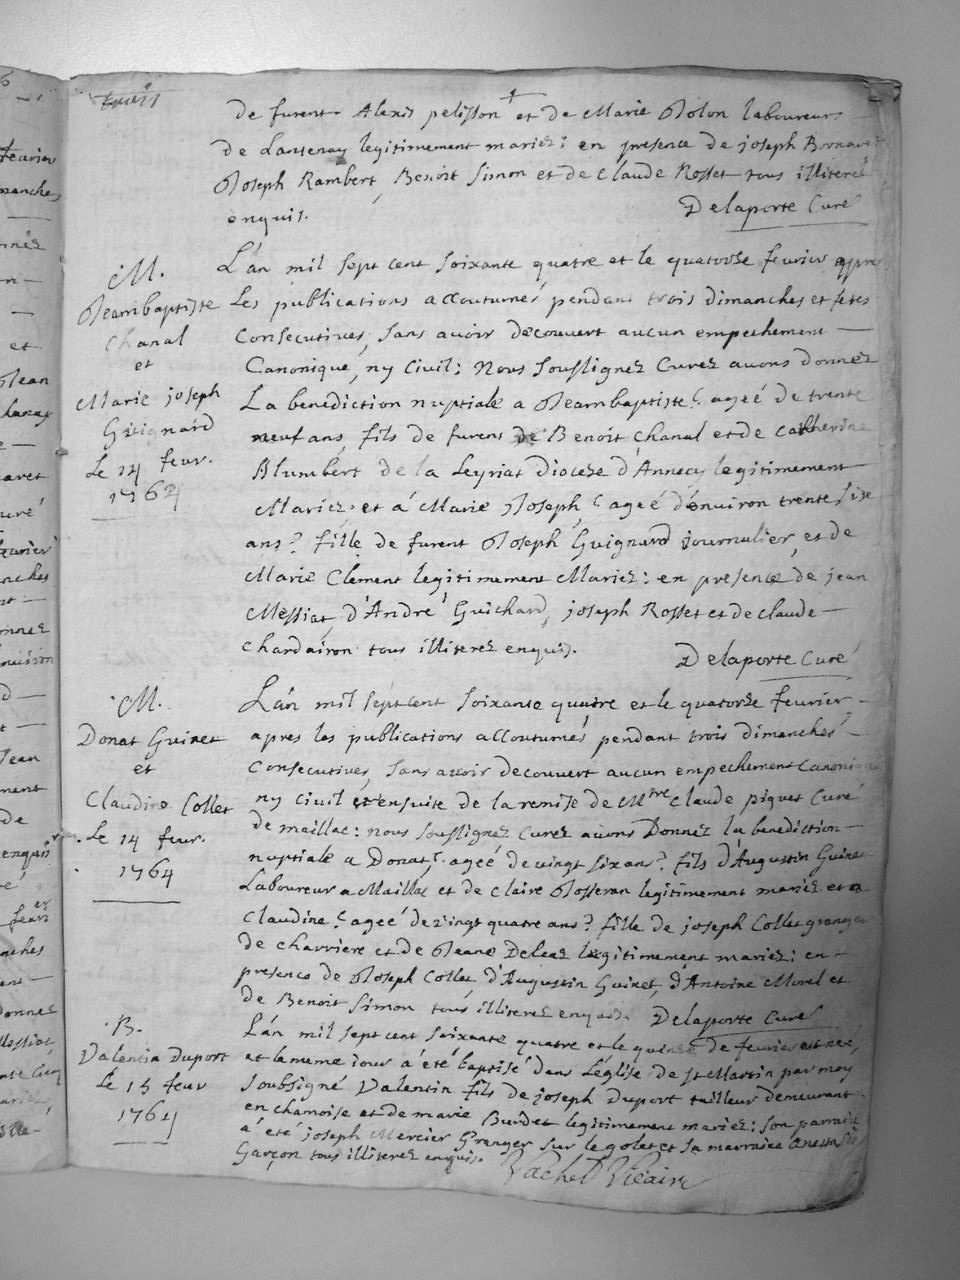 de furent Alexis pelisson et de Marie Bolon laboureur
de Lantenay legitimement mariez: en presence de joseph
Joseph Rambert, Benoit Simon et de Claude Rosset tous illiterez
enquis.
Delaporte Curé
M.
Jeambaptiste
Chanal
et
Marie joseph
Guignard
Le 14 feur.
1764
L'an mil sept cent soixante quatre et le quatorze feurier apprès
Les publications accoutumés pendant trois dimanches et fetes
Consecutives, sans avoir decouvert aucun empechement —
Canonique, ny Civil: Nous soussignez Curez avons donnez
La benediction nuptiale a Jeambaptiste (ageé de trente
neuf ans) fils de furent de Benoit chanal et de Catherine
Blumbert de la Leyriat Diocese d'Annecy legitimement
Mariez: et á Marie Joseph (ageé d'enuiron trente six
ans) fille de furent Joseph Guignard journalier, et de
Marie Clement legitimement Mariez: en presence de jean
Messiat, d'André Guichard, joseph Rosset et de claude —
chardairon tous illiterez enquis.
Delaporte Curé
M.
Donat Guinet
et
Claudine Collet
Le 14 feur.
1764
L'an mil sept cent soixante quatre et le quatorze feurier
apres les publications accoutumés pendant trois dimanches
Consecutives, sans avoir decouvert aucun empechement Canonique
ny civil et ensuite de la remise de Mtre claude piquet Curé
de maillac: nous soussignez Curez auons Donnez la benediction —
nuptiale a Donat (ageé de vingt six ans) fils d'Augustin Guinet
Laboureur a Maillac et de claire Josseran legitimement mariez et a
Claudine (ageé de vingt quatre ans) fille de joseph Collet granger
de charriere et de Jeane Deleaz legitimement mariez: en —
presence de Joseph Collet, d'Augustin Guinet, d'Antoine Morel et
de Benoit Simon tous illiterez enquis. Delaporte Curé
B.
Valentin Duport
Le 15 feur
1764
L'an mil sept cent soixante quatre et le quinze de feurier est né,
et le meme iour a été baptisé dans L'église de st Martin par moy
soubsigné Valentin fils de joseph Duport tailleur demeurant
en chamoise et de marie Burdet legitimement mariez; son parrain
a été joseph Mercier Granger sur le golet et sa marraine
Garçon tous illiterez enquis. Rachel Vicaire